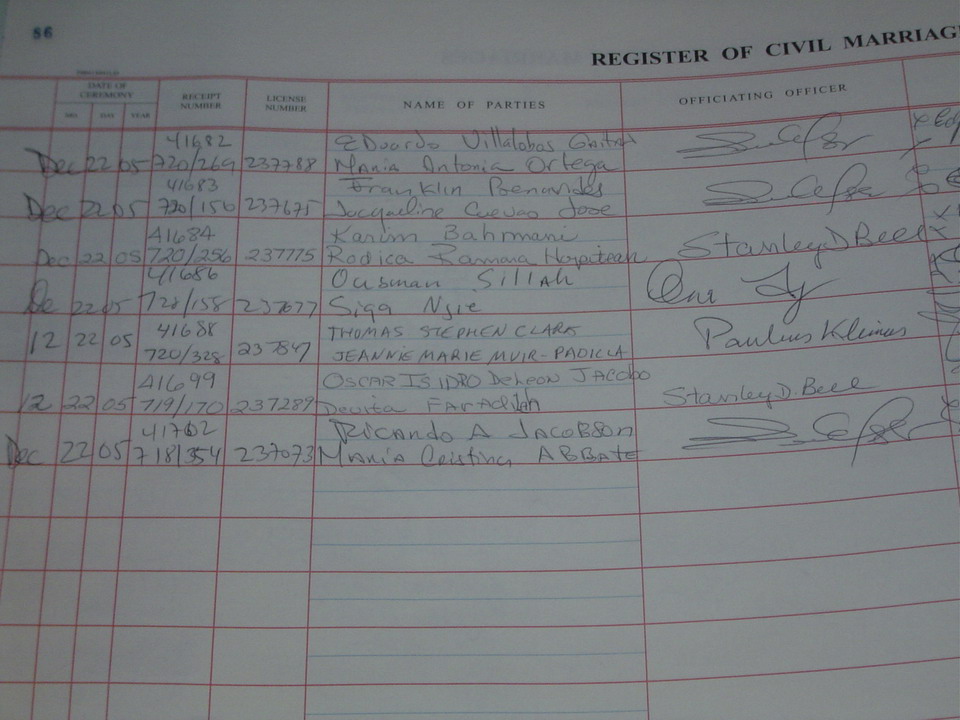 86
REGISTER OF CIVIL MARRIAG
DATE OF CEREMONY
MO. DAY YEAR
RECEIPT NUMBER
LICENSE NUMBER
NAME OF PARTIES
OFFICIATING OFFICER
41682 EDuardo Villalobos
Dec 22 05 720/269 237788 Maria Antonia Ortega
41683 Franklin Benavides
Dec 22 05 720/156 237675 Jacqueline Cuevas Jose
41684 Karim Bahmani
Dec 22 05 720/256 237775 Rodica Ramona Stanley D Bell
41686 Ousman Sillah
De 22 05 720/158 237677 Siga Njie
41688 THOMAS STEPHEN CLARK
12 22 05 720/328 237847 JEANNIE MARIE MUIR-PADILLA Paulius Klimas
41699 OSCAR ISIDRO DeLeon JACOBO
12 22 05 719/170 237289 Devita Stanley D. Bell
41702 RICARDO A JACOBSON
Dec 22 05 718/354 237073 MARIA Cristina ABBATE